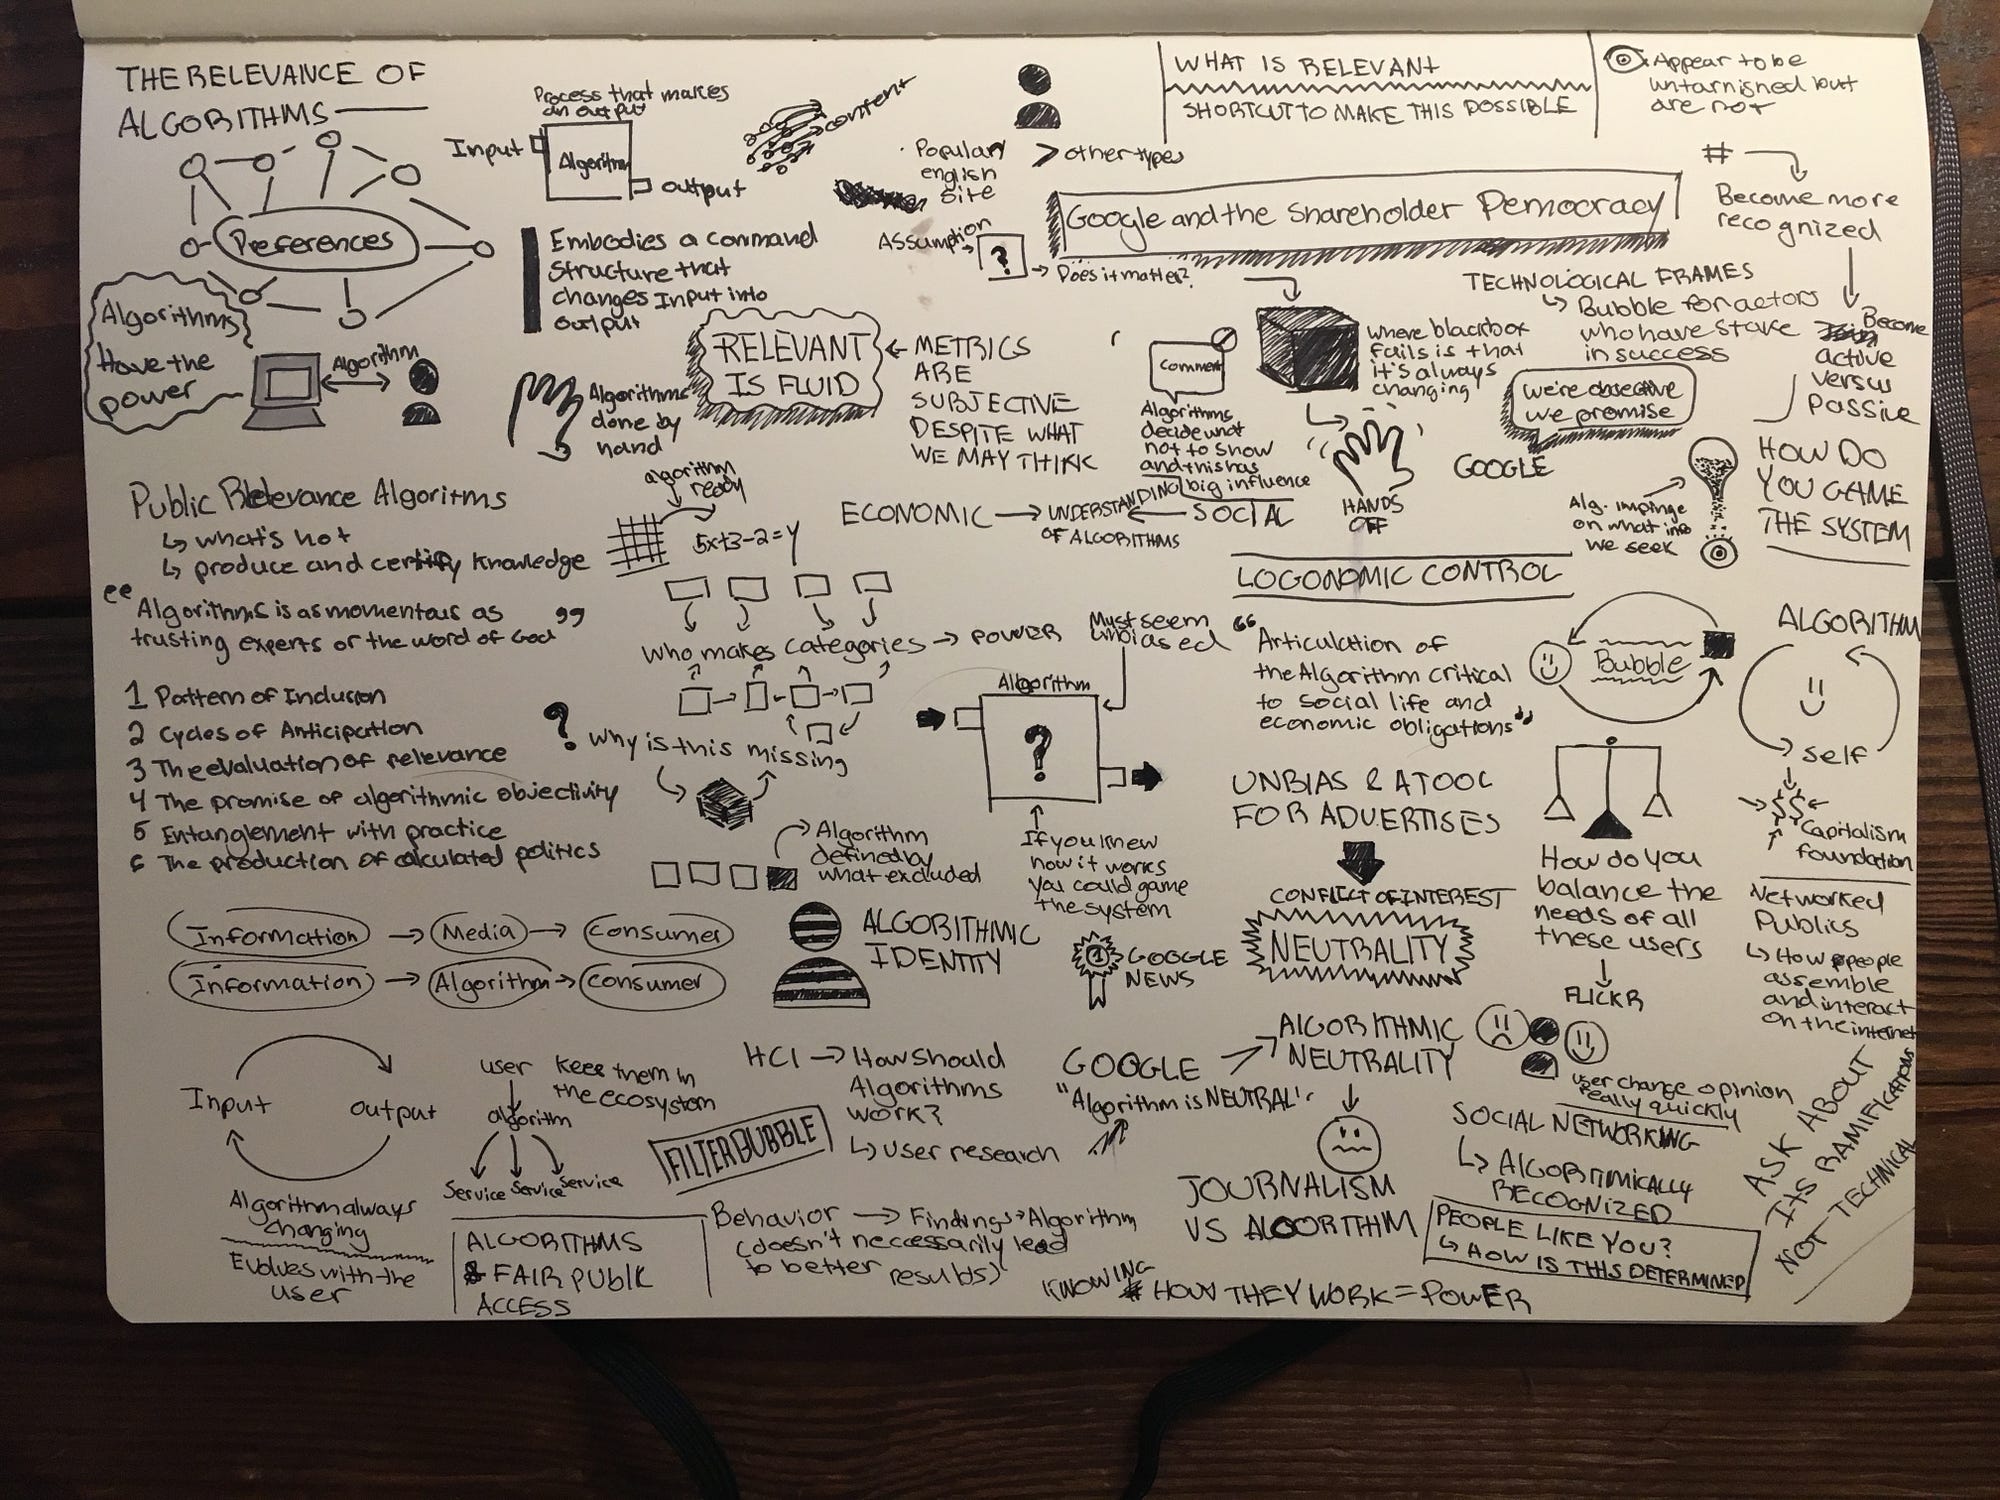 THE RELEVANCE OF
ALGORITHMS
Preferences
Algorithms
Have the
power
Algorithm
Process that makes
an output
Input
Algorithm
output
content
Embodies a command
structure that
changes Input into
output
Algorithms
done by
hand
RELEVANT
IS FLUID
METRICS
ARE
SUBJECTIVE
DESPITE WHAT
WE MAY THINK
english
site
> other types
Assumption
?
Does it matter?
WHAT IS RELEVANT
SHORTCUT TO MAKE THIS POSSIBLE
Google and the Shareholder Democracy
Appear to be
untarnished but
are not
#
Become more
recognized
Become
active
versus
Passive
TECHNOLOGICAL FRAMES
Bubble for actors
who have stake
in success
Comment
Algorithms
decide what
not to show
and this has
big influence
where blackbox
fails is that
it's always
changing
HANDS
OFF
we're objective
we promise
GOOGLE
HOW DO
YOU GAME
THE SYSTEM
Alg. impinge
on what
we seek
ECONOMIC → UNDERSTANDING ← SOCIAL
OF ALGORITHMS
Public Relevance Algoritms
↳ what's hot
↳ produce and certify knowledge
"Algorithms is as momentous as
trusting experts or the word of God"
1 Pattern of Inclusion
2 Cycles of Anticipation
3 The evaluation of relevance
4 The promise of algorithmic objectivity
5 Entanglement with practice
6 The production of calculated politics
algorithm
ready
5x+3-2=y
who makes categories → POWER
? Why is this missing
Algorithm
defined by
what excluded
Must seem
unbiased
Algorithm
?
If you knew
how it works
you could game
the system
LOGONOMIC CONTROL
"Articulation of
the Algorithm critical
to social life and
economic obligations"
Bubble
ALGORITHM
self
$$
Capitalism
foundation
UNBIAS & A TOOL
FOR ADVERTISES
CONFLICT OF INTEREST
NEUTRALITY
How do you
balance the
needs of all
these users
FLICKR
Networked
Publics
↳ How people
assemble
and interact
on the internet
Information → Media → Consumer
Information → Algorithm → Consumer
ALGORITHMIC
IDENTITY
1
GOOGLE
NEWS
Input
output
Algorithm always
changing
Evolves with the
user
user
algorithm
Service Service Service
keep them in
the ecosystem
FILTER BUBBLE
HCI → How should
Algorithms
work?
↳ user research
GOOGLE
"Algorithm is NEUTRAL"
ALGORITHMIC
NEUTRALITY
user change opinion
really quickly
JOURNALISM
VS ALGORITHM
SOCIAL NETWORKING
↳ ALGORITMICALLY
RECOGNIZED
PEOPLE LIKE YOU?
↳ HOW IS THIS DETERMINED
ASK ABOUT
ITS RAMIFICATIONS
NOT TECHNICAL
ALGORITHMS
& FAIR PUBLIC
ACCESS
Behavior → Findings → Algorithm
(doesn't necessarily lead
to better results)
KNOWING HOW THEY WORK = POWER